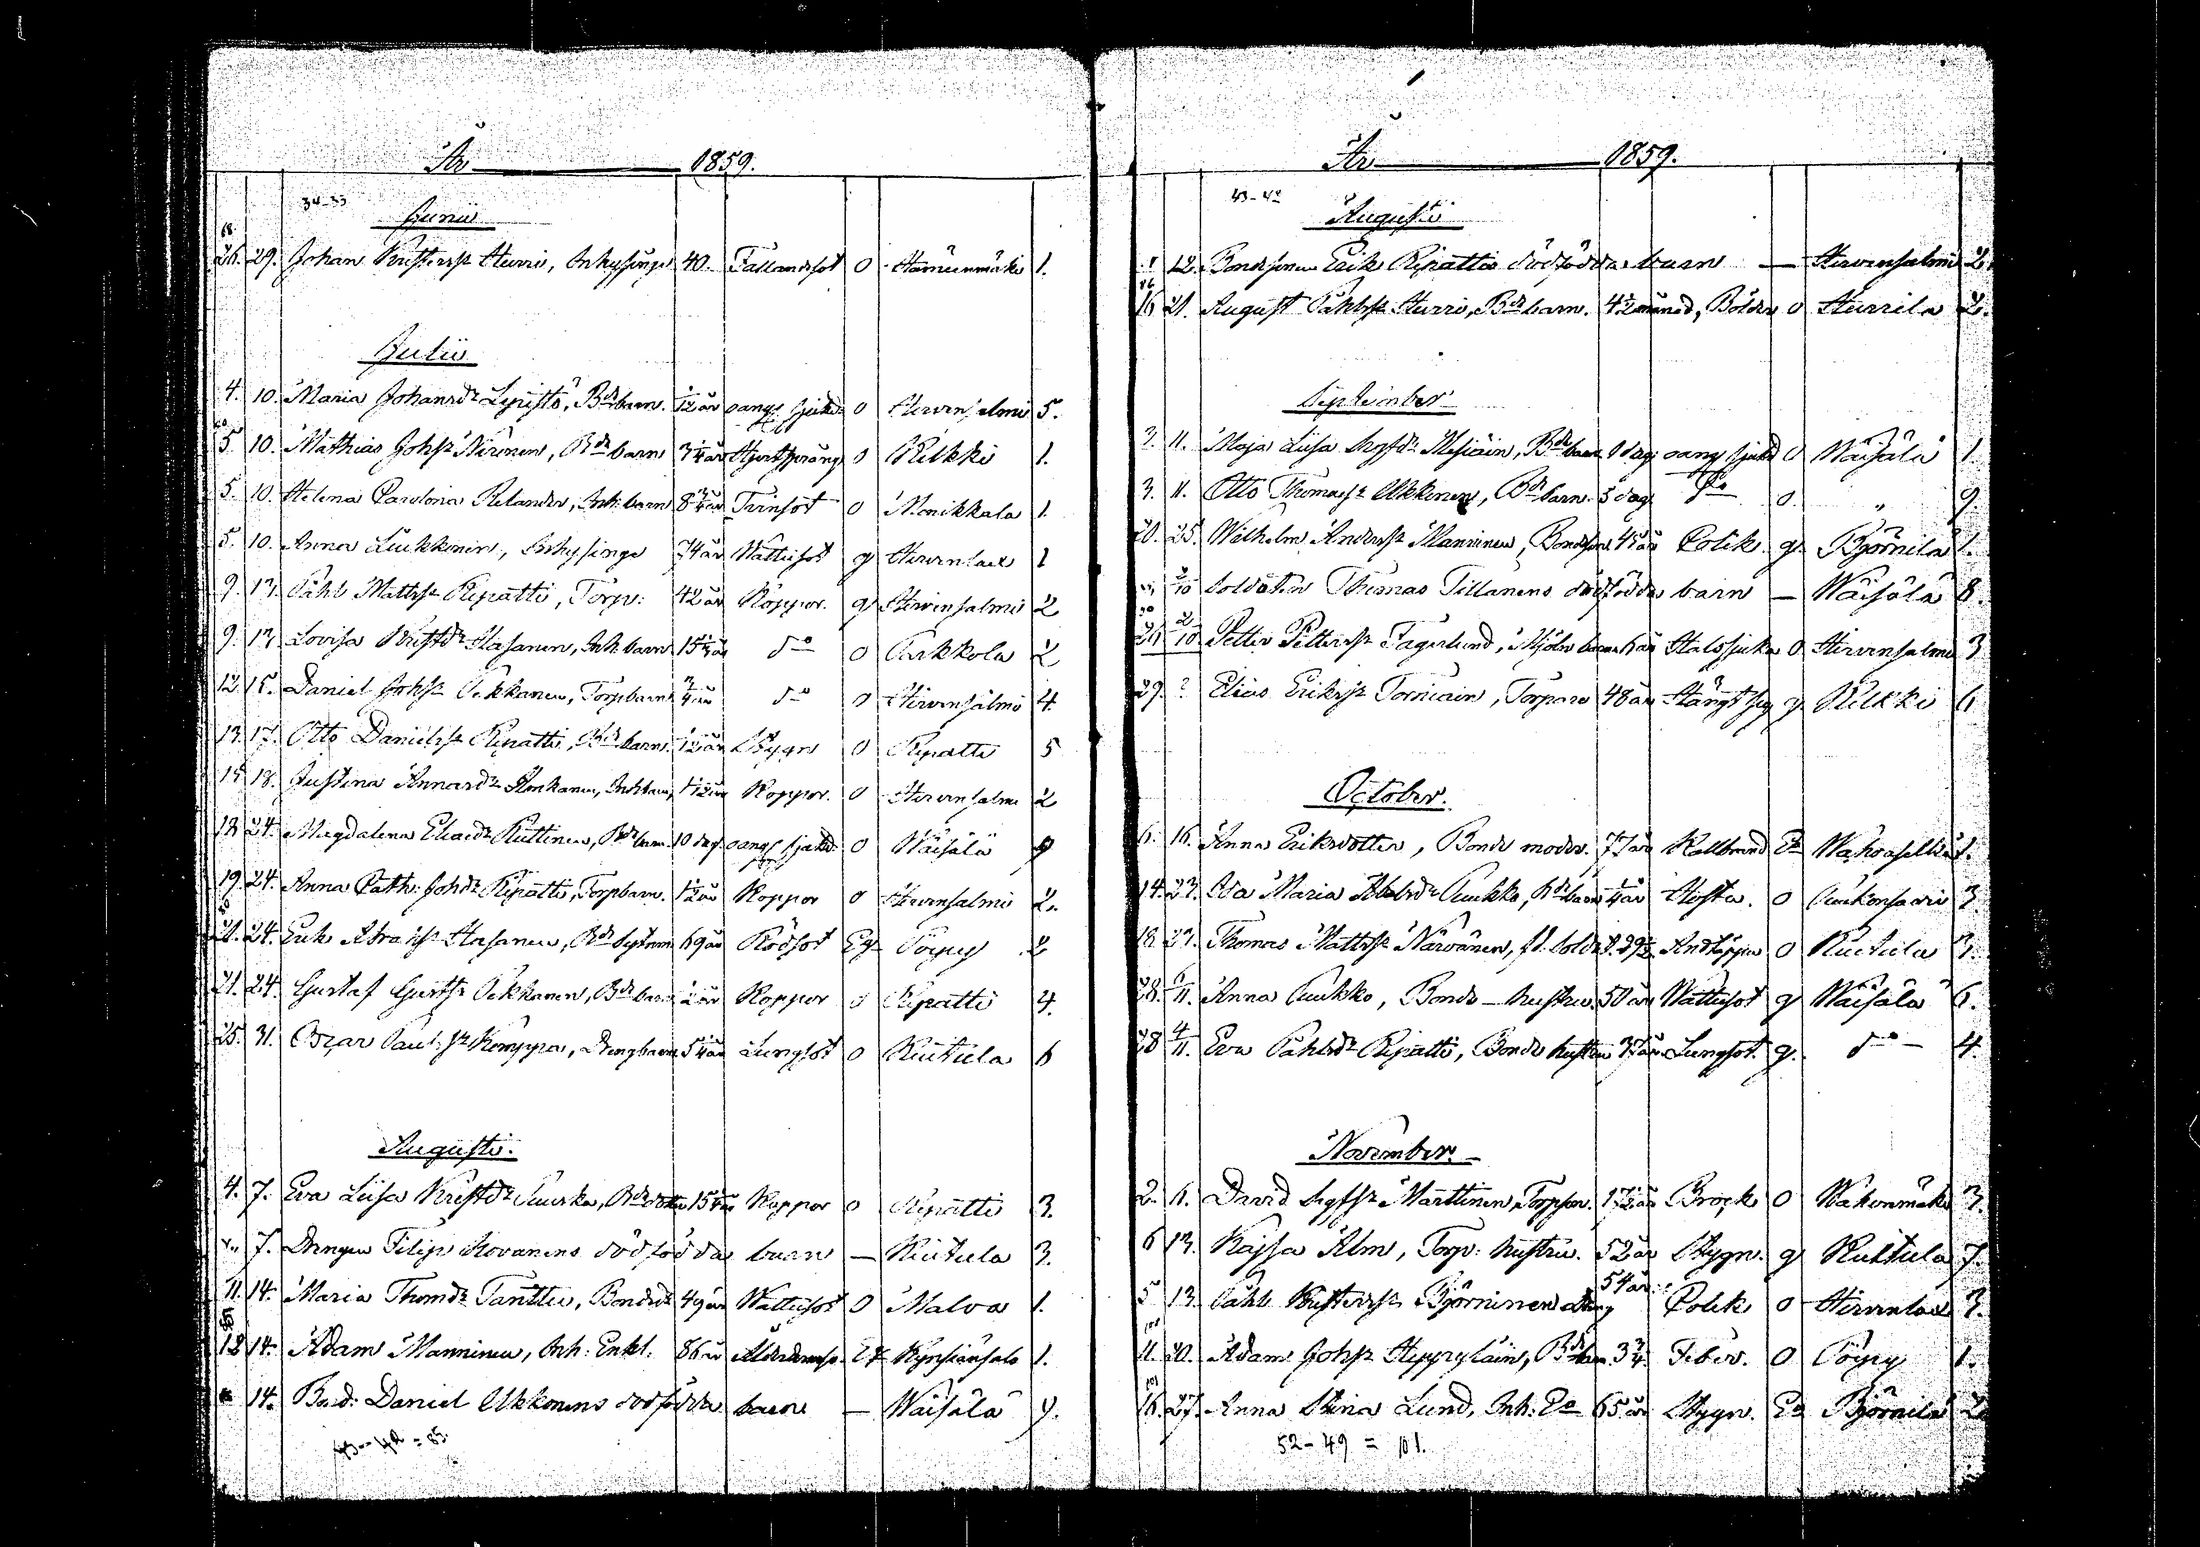 År 1859.
34-33
Junii
26. 29. Johan Kristerss: Hurri, Inhysinge 40. Fallandsot 0 Hämeenmäki 1.
Julii
4. 10. Maria Johansdr Lyijsto, Bdebarn. 1/12 år oangf. sjukd. 0 Hirvensalmi 5.
5 10. Mathias Johss: Nironen, Bdebarn 3 1/4 år Hjertsprång 0 Kilkki 1.
5. 10. Helena Carolina Relander, Inh: barn 8 3/4 år Tvinsot 0 Monikkala 1.
5. 10. Anna Liukkonen, Inhysinge 74 år Wattusot g Hirvenlax 1
9. 13. Påhl Mattss: Ripatti, Torp: 42 år Koppor. g Hirvensalmi 2
9. 13. Lovisa Kristdr Hasanen, Inh. barn 15 1/4 år do 0 Parkkola 2
12. 15. Daniel Johss: Pekkanen, Torpbarn 3/4 år do 0 Hirvensalmi 4
13. 17. Otto Danielss: Ripatti, Bdebarn 1/12 år Stygn 0 Ripatti 5
15 18. Justina Annasdr Honkanen, Inhbarn, 1 1/12 år Koppor. 0 Hirvensalmi 2
18 24. Magdalena Eliædr Kuttinen, Bdebarn 10 dag. oangf sjukd. 0 Wäisälä 9
19. 24. Anna Cath: Johdr Ripatti, Torpbarn. 1/2 år Koppor 0 Hirvensalmi 2.
21. 24. Erik Abrahss: Hasanen, Bde 69 år Rödsot Eg Pöyry 2
21. 24. Gustaf Gustss: Pekkanen, Bdebarn 1/2 år Koppor 0 Ripatti 4.
25. 31. Oscar Paulss: Kemppi, Drengbarn 5 1/4 år Lungsot 0 Kuitula 6
Augusti.
4. 7. Eva Lisa Kristdr Bdedotter 15 år Koppor 0 Ripatti 3.
7. Drengen Filip Kovanens dödfödda barn — Kuitula 3.
11. 14. Maria Thomdr Tanttu, Bonded: 49 år Wattusot 0 Malvo 1.
12 14. Adam Manninen, Inh: Enkl. 86 år Ålderdomsv. E Kynsiänsalo 1.
14. Bond: Daniel Ukkonens dödfödda barn — Wäisälä 9.
År 1859.
Augusti
12. Bondsonen Erik Ripattis dödfödda barn — Hirvensalmi 2.
16 21. August Påhlss: Hurri, Bdebarn. 4 1/2 månad, Bölder 0 Hurrila 2.
September
3. 11. Maja Lisa Bdebarn 1 dag oangf sjukd 0 Wäisälä 1.
3. 11. Otto Thomass: Ukkonen, Bdebarn. 5 dag do 0. " 9.
20. 25. Wilhelm Anderss: Manninen, Bondeson 45 år Colik g. Björnilä 1.
2/10 Soldaten Thomas Tillanens dödfödda barn — Wäisälä 8.
2/10 Petter Petterss: Fagerlund, Mjöln. barn 6 år Halssjuka 0 Hirvensalmi 3
29. ? Elias Erikss: Torniain, Torpare 48 år Hängt sig g Kilkki 6
October.
6. 16. Anna Eriksdotter, Bonde moder. 77 år Kallbrand Ea Wahvaselkä 1.
14. 23. Eva Maria Puukko, Bdebarn 1/4 år Hosta. 0 Puukonsaari 3.
19 23. Thomas Mattss: Närvänen, fd. Sold: 0 Kuitula 3.
28. 6/11. Anna Puukko, Bonde-hustru 50 år Wattusot g Wäisälä 6.
28 4/11. Eva Påhlsdr Ripatti, Bonde hustru 37 år Lungsot. g. do — 4.
November.
2. 6. David Sigfss: Marttinen, Torpson. 17 1/2 år Bråck 0 Wahvenmäki 3.
6 13. Kajsa Alm, Torp: hustru. 52 år Stygn. g Kuitula 7.
5 13. Påhl Kristerss: Björninen dräng 54 år Colik 0 Hirvenlax 3.
11. 20. Adam Johss: Heppyläin, Bdebarn 3 3/4. Feber. 0 Pöyry 1.
16. 27. Anna Stina Lund, Inh: Ea 65 år Stygn. Ea Björnilä 2
52-49 = 101.